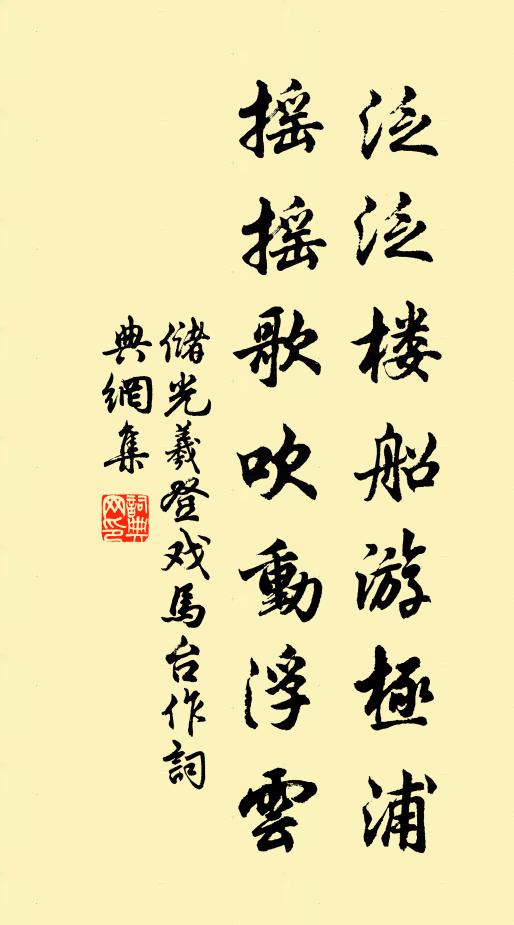 泛泛楼船游極浦
摇摇歌吹動浮雲
儲光羲登戏馬台作詞
典網集
詞典网印